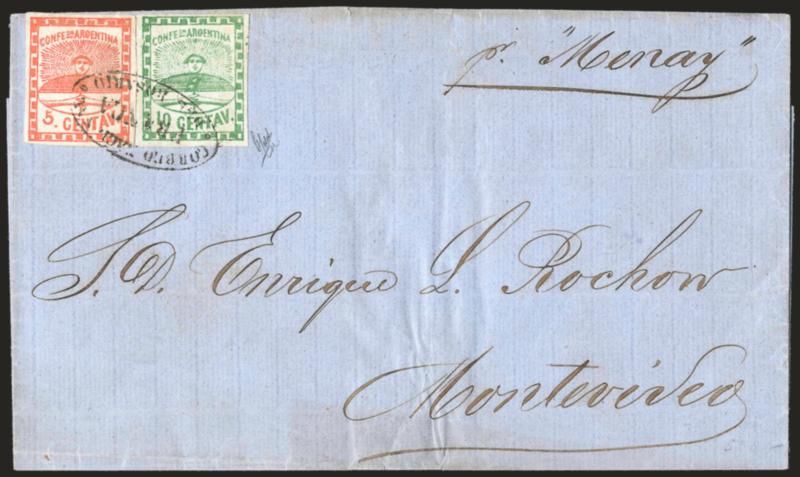 CONFEON ARGENTINA
5. CENTAV.
CONFEON ARGENTINA
10 CENTAV.
FRANCA
p. "Menay"
S. D. Enrique L. Rochow
Montevideo